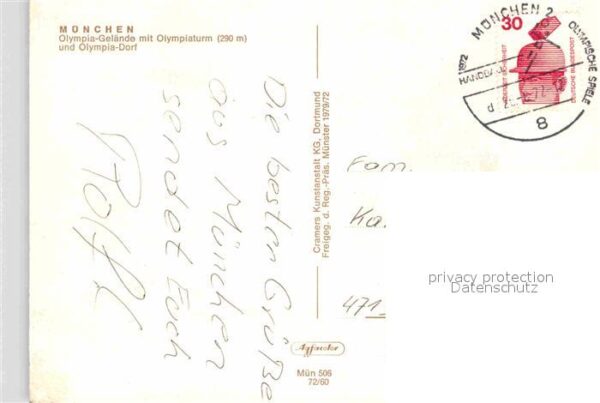 MÜNCHEN
Olympia-Gelände mit Olympiaturm (290 m)
und Olympia-Dorf
Die besten Grüße
aus München
sendet Euch
Cramers Kunstanstalt KG, Dortmund
Freigeg. d. Reg.-Präs. Münster 1979/72
Agfacolor
Mün 506
72/60
30
DEUTSCHE BUNDESPOST
MÜNCHEN 2
OLYMPISCHE SPIELE
1972
HANDBALL
d
8
Fam.
Ka.
471
privacy protection
Datenschutz